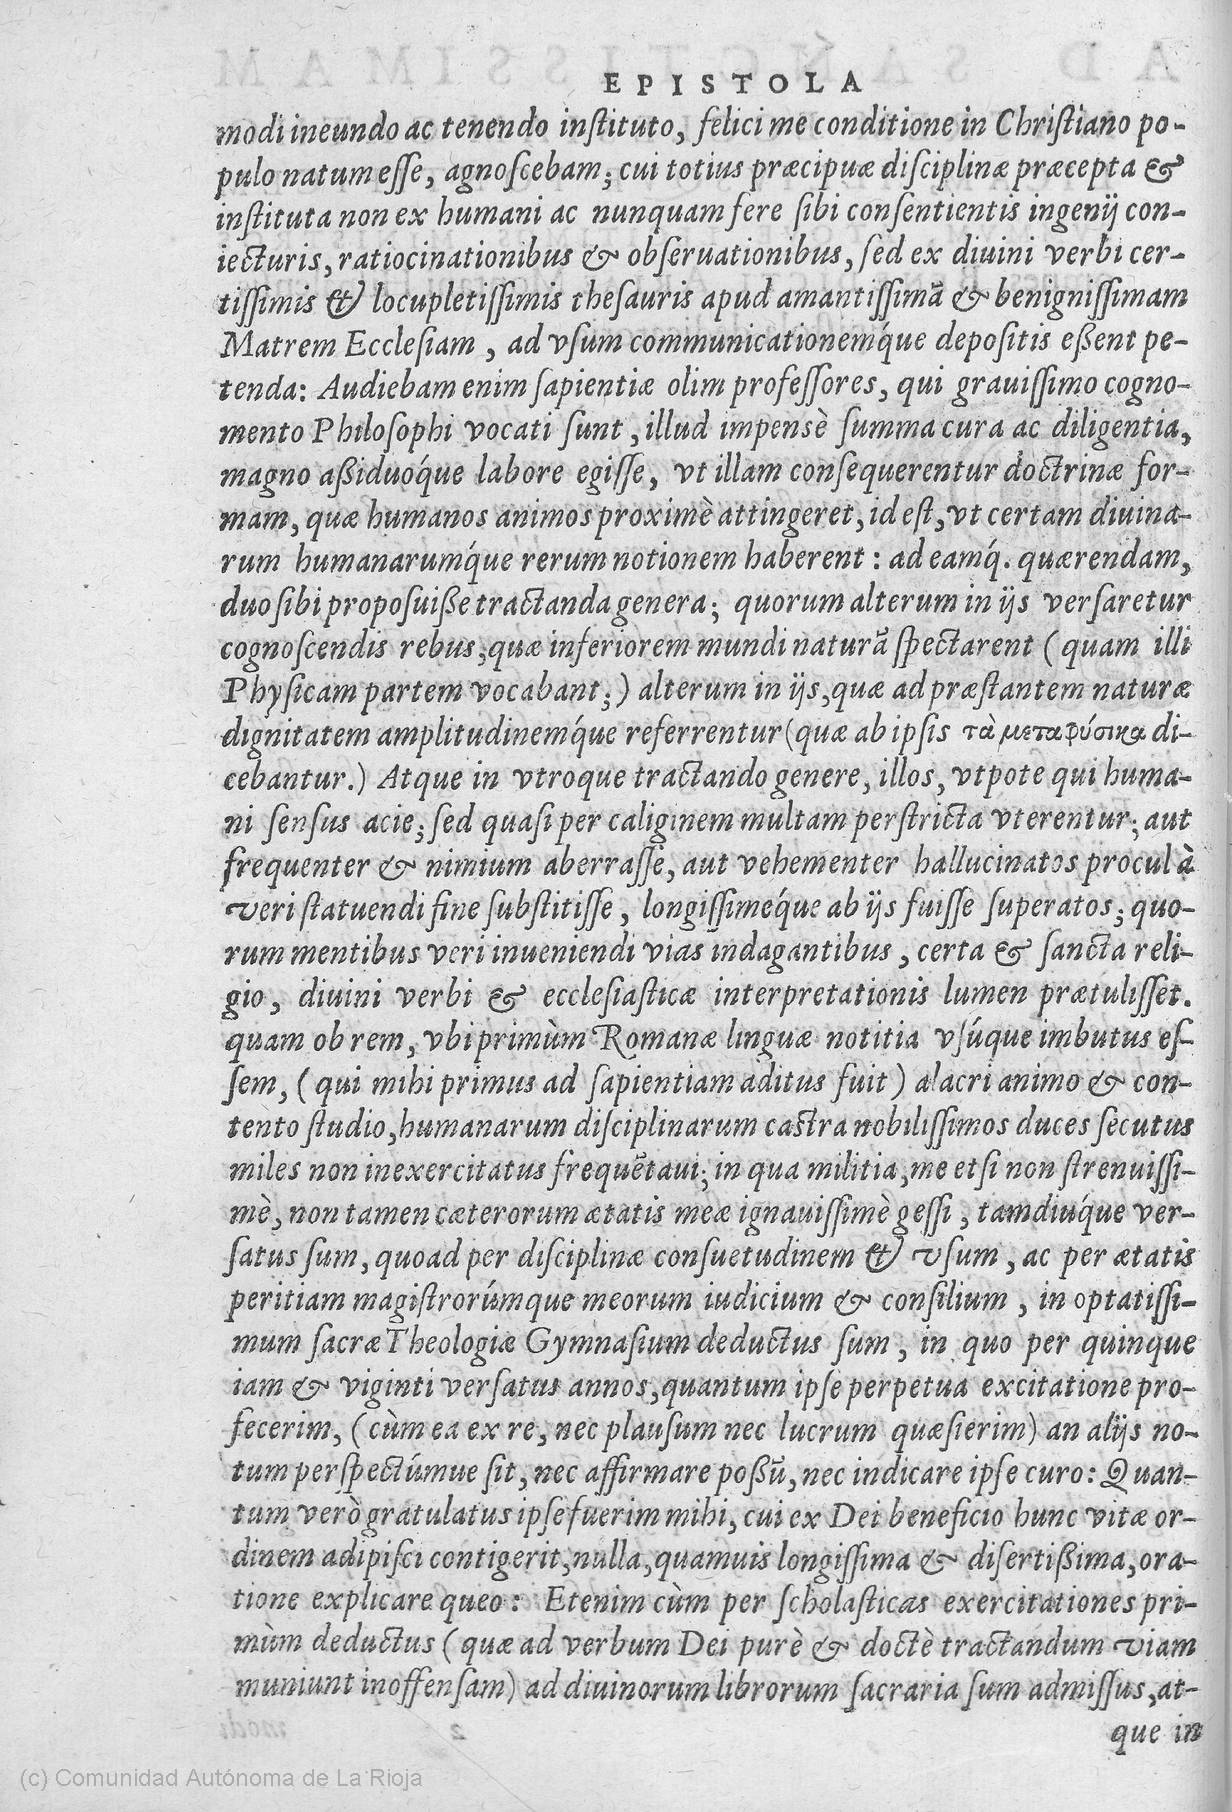 EPISTOLA
modi ineundo ac tenendo inſtituto, felici me conditione in Chriſtiano po-
pulo natum eſſe, agnoſcebam; cui totius præcipuæ diſciplinæ præcepta &
inſtituta non ex humani ac nunquam fere ſibi conſentientis ingenij con-
iecturis, ratiocinationibus & obſeruationibus, ſed ex diuini verbi cer-
tiſſimis & locupletiſſimis theſauris apud amantiſſimā & benigniſſimam
Matrem Eccleſiam, ad vſum communicationemq́ue depoſitis eßent pe-
tenda: Audiebam enim ſapientiæ olim profeſſores, qui grauiſſimo cogno-
mento Philoſophi vocati ſunt, illud impensè ſumma cura ac diligentia,
magno aßiduoq́ue labore egiſſe, vt illam conſequerentur doctrinæ for-
mam, quæ humanos animos proximè attingeret, id eſt, vt certam diuina-
rum humanarumq́ue rerum notionem haberent: ad eamq́. quærendam,
duo ſibi propoſuiße tractanda genera; quorum alterum in ijs verſaretur
cognoſcendis rebus, quæ inferiorem mundi naturā ſpectarent (quam illi
Phyſicam partem vocabant;) alterum in ijs, quæ ad præſtantem naturæ
dignitatem amplitudinemq́ue referrentur (quæ ab ipſis τὰ μεταφύσικα di-
cebantur.) Atque in vtroque tractando genere, illos, vtpote qui huma-
ni ſenſus acie; ſed quaſi per caliginem multam perſtricta vterentur; aut
frequenter & nimium aberraſſe, aut vehementer hallucinatos procul à
veri ſtatuendi fine ſubſtitiſſe, longiſſimeq́ue ab ijs fuiſſe ſuperatos; quo-
rum mentibus veri inueniendi vias indagantibus, certa & ſancta reli-
gio, diuini verbi & eccleſiaſticæ interpretationis lumen prætuliſſet.
quam ob rem, vbi primùm Romanæ linguæ notitia vſúque imbutus eſ-
ſem, (qui mihi primus ad ſapientiam aditus fuit) alacri animo & con-
tento ſtudio, humanarum diſciplinarum caſtra nobiliſſimos duces ſecutus
miles non inexercitatus frequētaui; in qua militia, me etſi non ſtrenuiſſi-
mè, non tamen cæterorum ætatis meæ ignauiſſimè geſſi, tamdiuq́ue ver-
ſatus ſum, quoad per diſciplinæ conſuetudinem & vſum, ac per ætatis
peritiam magiſtrorúmque meorum iudicium & conſilium, in optatiſſi-
mum ſacræ Theologiæ Gymnaſium deductus ſum, in quo per quinque
iam & viginti verſatus annos, quantum ipſe perpetua excitatione pro-
fecerim, (cùm ea ex re, nec plauſum nec lucrum quæſierim) an alijs no-
tum perſpectúmue ſit, nec affirmare poßū, nec indicare ipſe curo: Quan-
tum verò gratulatus ipſe fuerim mihi, cui ex Dei beneficio hunc vitæ or-
dinem adipiſci contigerit, nulla, quamuis longiſſima & diſertißima, ora-
tione explicare queo: Etenim cùm per ſcholaſticas exercitationes pri-
mùm deductus (quæ ad verbum Dei purè & doctè tractandum viam
muniunt inoffenſam) ad diuinorum librorum ſacraria ſum admiſſus, at-
que in
(c) Comunidad Autónoma de La Rioja